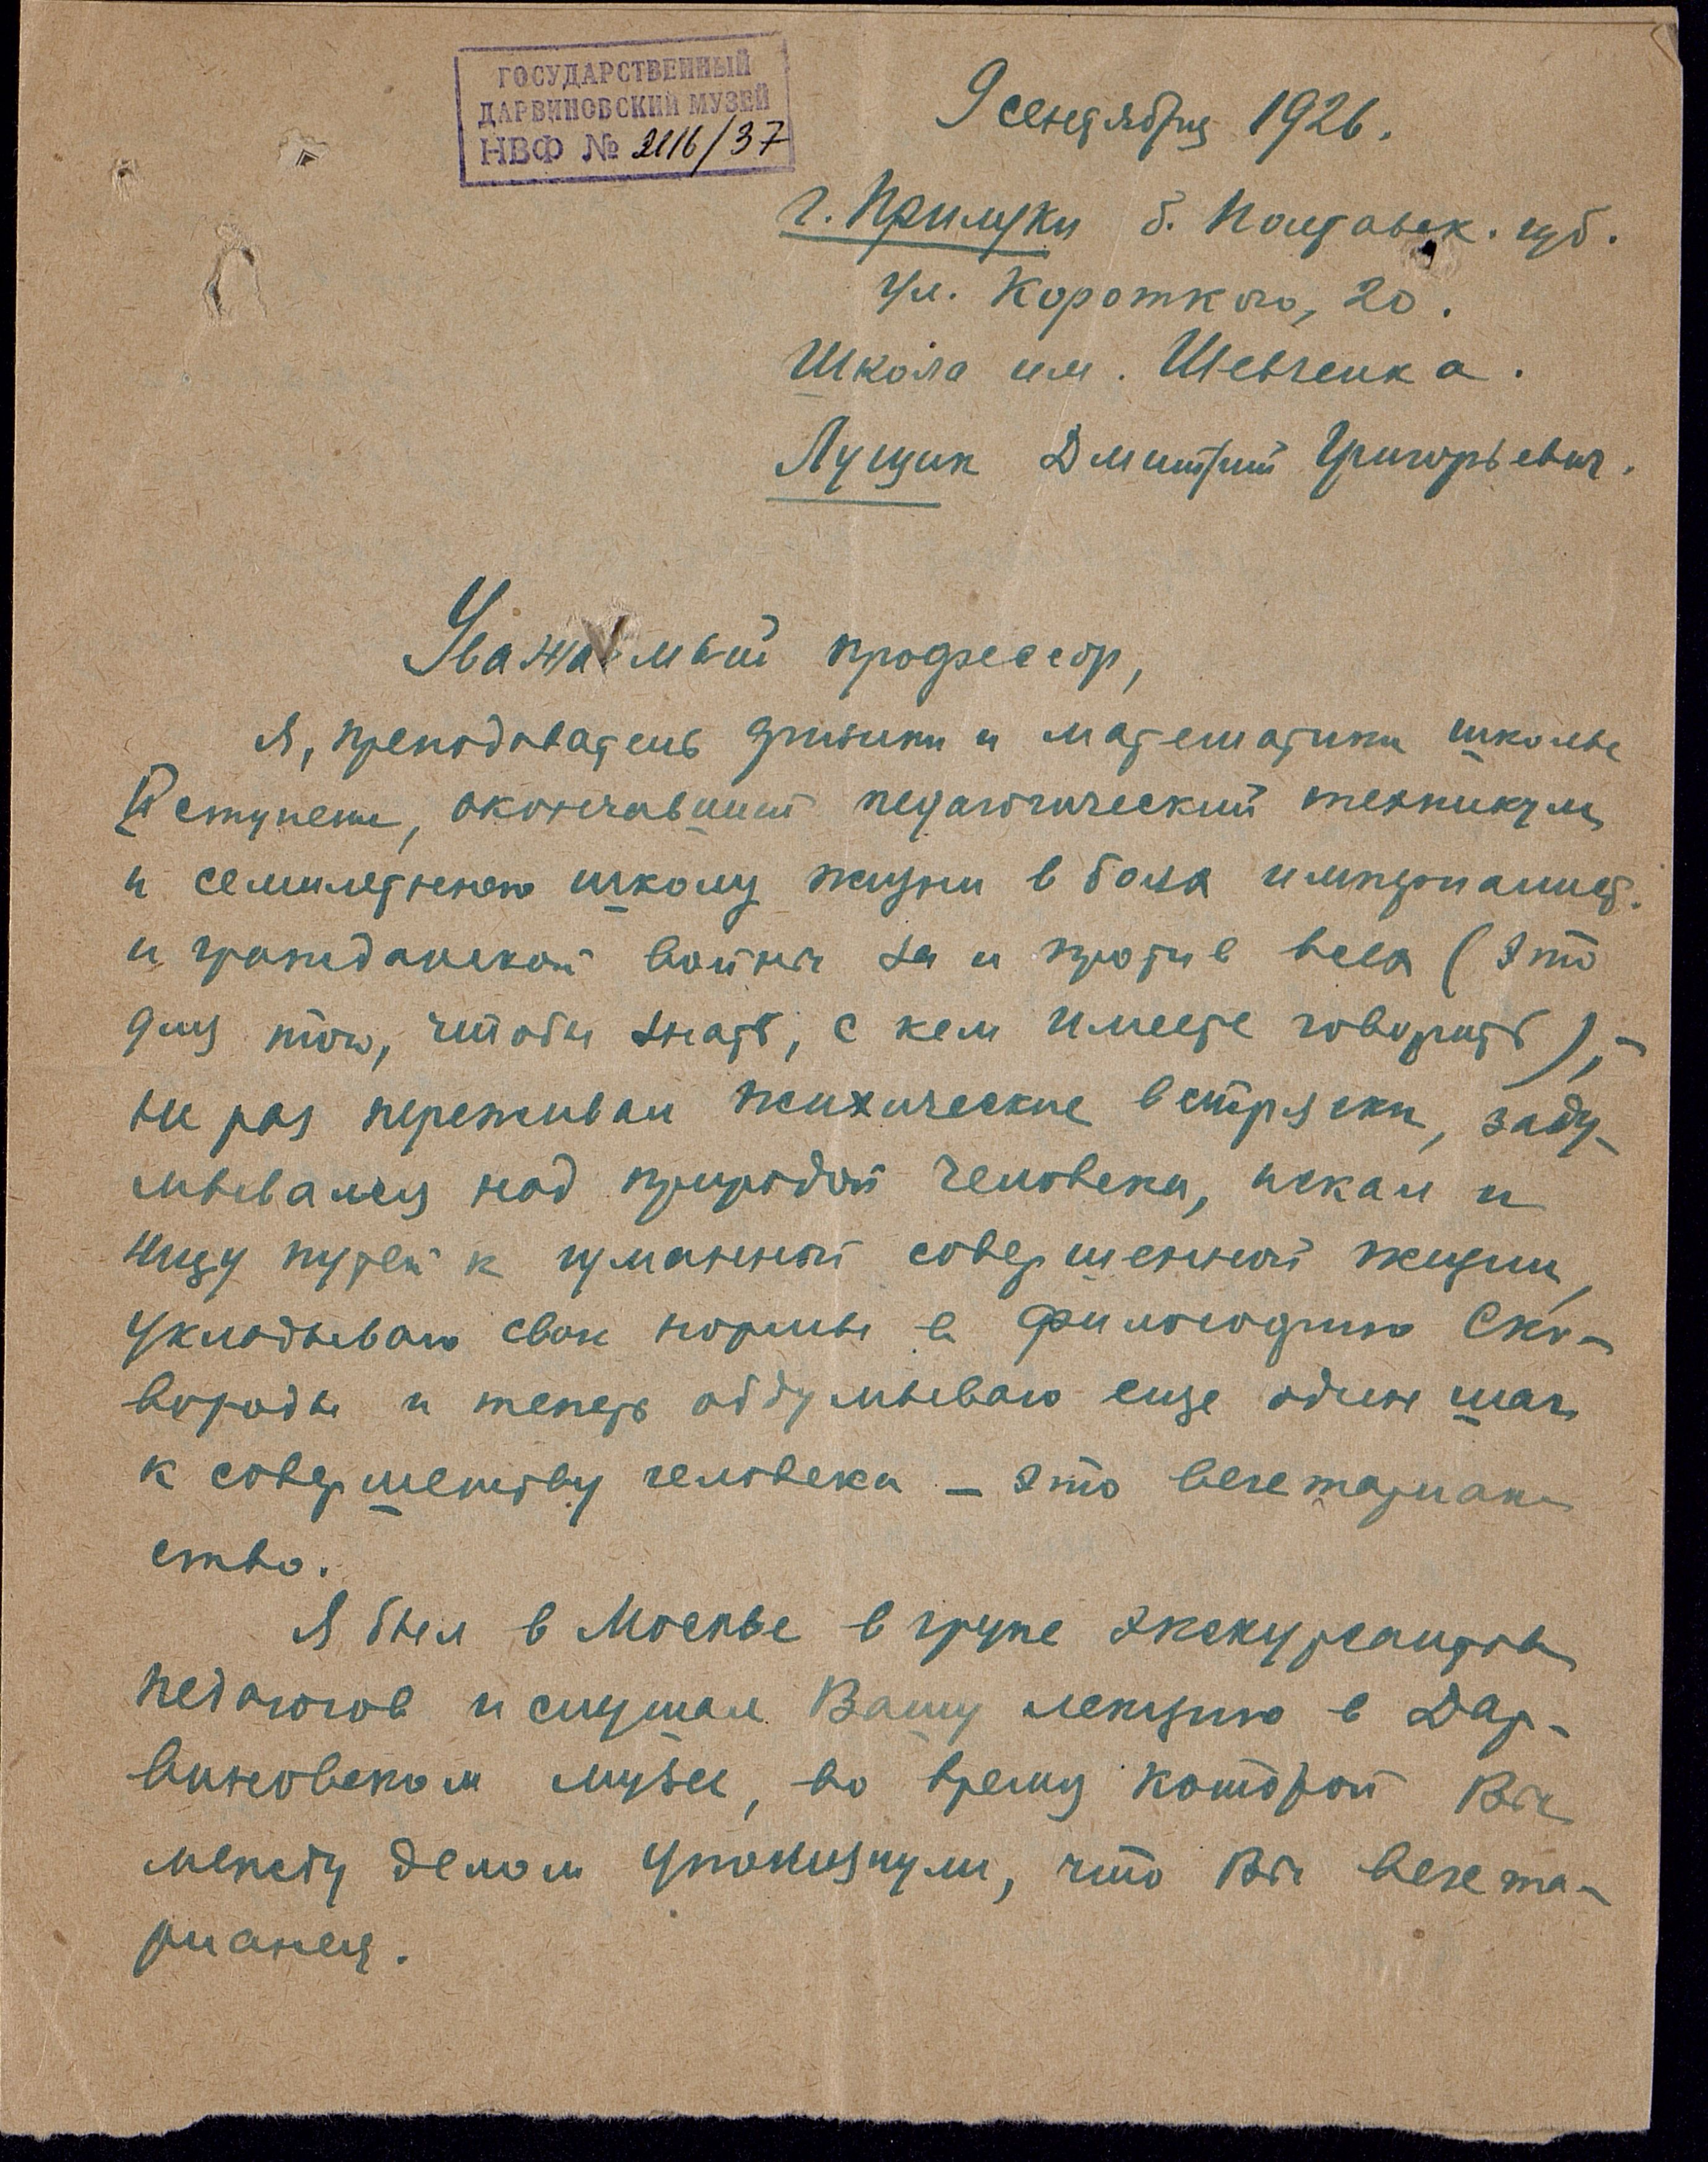 ГОСУДАРСТВЕННЫЙ
ДАРВИНОВСКИЙ МУЗЕЙ
НВФ № 2116/37
9 сентября 1926.
г. Прилуки б. Полтавск. губ.
ул. Короткого, 20.
Школа им. Шевченка.
Лущик Дмитрий Григорьевич.
Уважаемый профессор,
Я, преподаватель физики и математики школы
II ступени, окончавший педагогический техникум
и семилетнюю школу жизни в боях империалист.
и гражданской войны за и против всех (это
для того, чтобы знать, с кем имеете говорить), –
не раз переживал психические встряски, заду-
мывался над природой человека, искал и
ищу путей к гуманной совершенной жизни,
укладываю свои нормы в философию Ско-
вороды и теперь обдумываю еще один шаг
к совершенству человека – это вегетариан-
ство.
Я был в Москве в групе экскурсантов
педагогов и слушал Вашу лекцию в Дар-
виновском музее, во время которой Вы
между делом упомянули, что Вы вегета-
рианец.